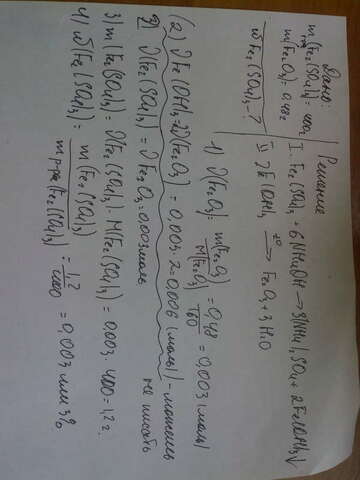 Дано:
m р-ра (Fe₂(SO₄)₃) = 400г
m(Fe₂O₃) = 0,48г
ω Fe₂(SO₄)₃ - ?
Решение
I. Fe₂(SO₄)₃ + 6NH₄OH → 3(NH₄)₂SO₄ + 2Fe(OH)₃↓
II 2Fe(OH)₃ →t° Fe₂O₃ + 3H₂O
1) ν(Fe₂O₃) = m(Fe₂O₃) / M(Fe₂O₃) = 0,48 / 160 = 0,003 (моль)
(2) νFe(OH)₃ = 2ν(Fe₂O₃) = 0,003 · 2 = 0,006 (моль) - можешь
не писать
2) ν(Fe₂(SO₄)₃) = νFe₂O₃ = 0,003 моль
3) m(Fe₂(SO₄)₃) = ν(Fe₂(SO₄)₃) · M(Fe₂(SO₄)₃) = 0,003 · 400 = 1,2 г.
4) ω(Fe₂(SO₄)₃) = m(Fe₂(SO₄)₃) / m р-ра (Fe₂(SO₄)₃) = 1,2 / 400 = 0,003 или 3%